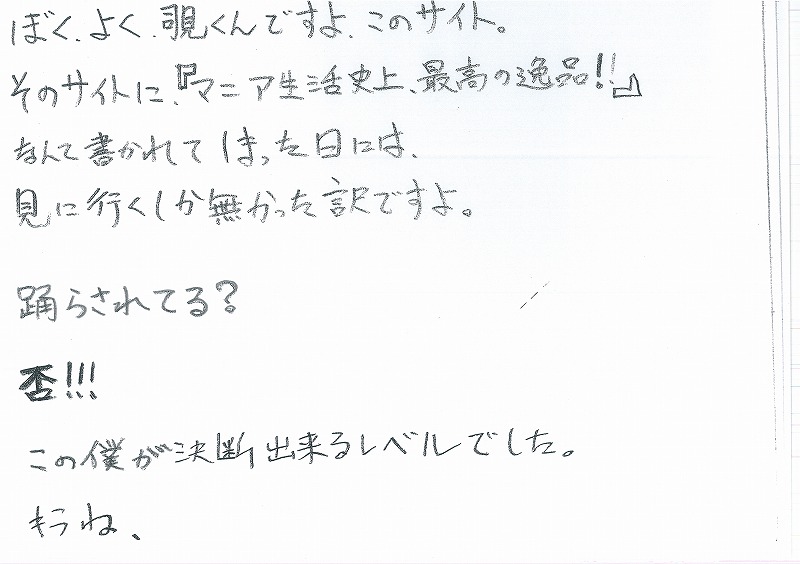 ぼく、よく、覗くんですよ、このサイト。
そのサイトに、『マニア生活史上、最高の逸品!!』
なんて書かれてしまった日には、
見に行くしか無かった訳ですよ。
踊らされてる?
否!!!
この僕が決断出来るレベルでした。
もうね、